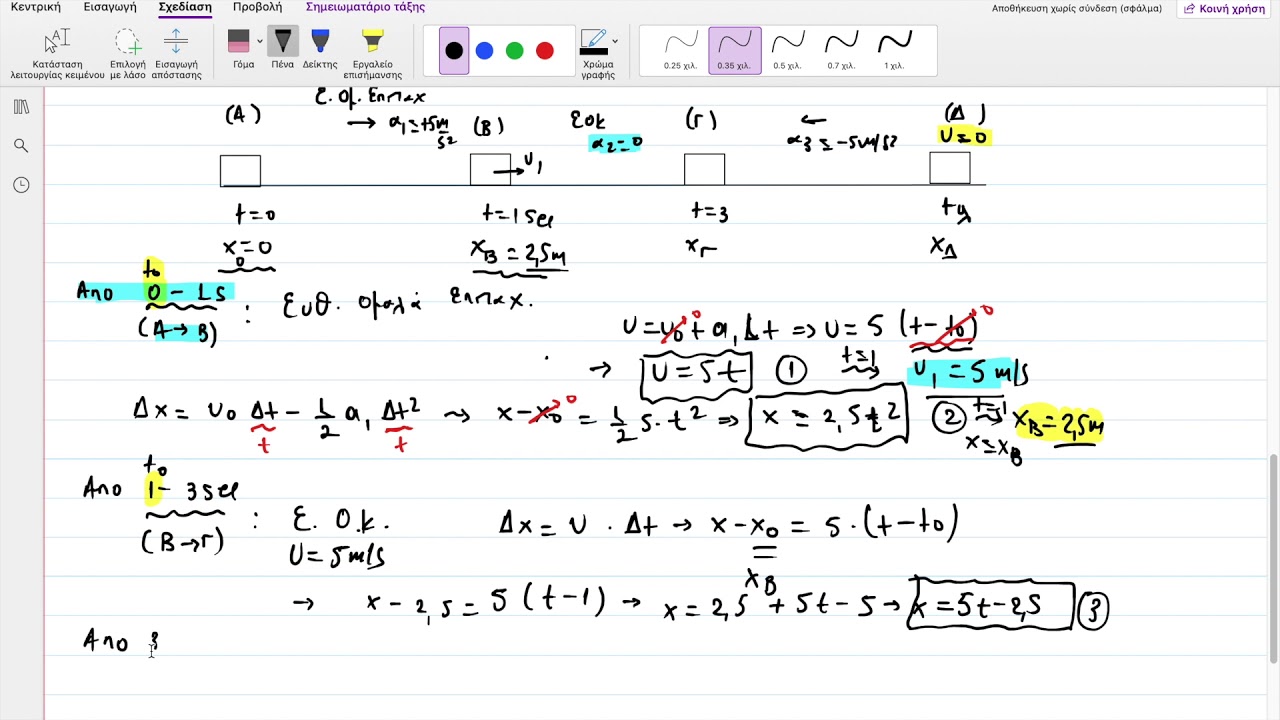 Κεντρική Εισαγωγή Σχεδίαση Προβολή Σημειωματάριο τάξης
Αποθήκευση χωρίς σύνδεση (σφάλμα) Κοινή χρήση
Κατάσταση λειτουργίας κειμένου
Επιλογή με λάσο
Εισαγωγή απόστασης
Γόμα Πένα Δείκτης
Εργαλείο επισήμανσης
Χρώμα γραφής
0.25 χιλ. 0.35 χιλ. 0.5 χιλ. 0.7 χιλ. 1 χιλ.
Ε. Ομ. Επιταχ
(Α) → α₁=+5m/s² (Β) ΕΟΚ α₂=0 (Γ) ← α₃=-5m/s² (Δ) υ=0
υ₁
t=0 t=1sec t=3 tΔ
x₀=0 xB=2,5m xΓ xΔ
t₀
Απο 0 - 1s : Ευθ. Ομαλά Επιταχ.
(Α→Β)
υ=υ₀+α₁Δt ⇒ υ=5(t-t₀)
→ υ=5t ① t=1 υ₁=5m/s
Δx = υ₀Δt - ½α₁Δt² ⤳ x-x₀=½5·t² ⇒ x=2,5t² ② t=1 xB=2,5m
t t x=xB
t₀
Απο 1 - 3sec : Ε. Ο.Κ. Δx=υ·Δt → x-x₀=5·(t-t₀)
(Β→Γ) υ=5m/s xB
→ x-2,5=5(t-1) → x=2,5+5t-5 → x=5t-2,5 ③
Απο 3